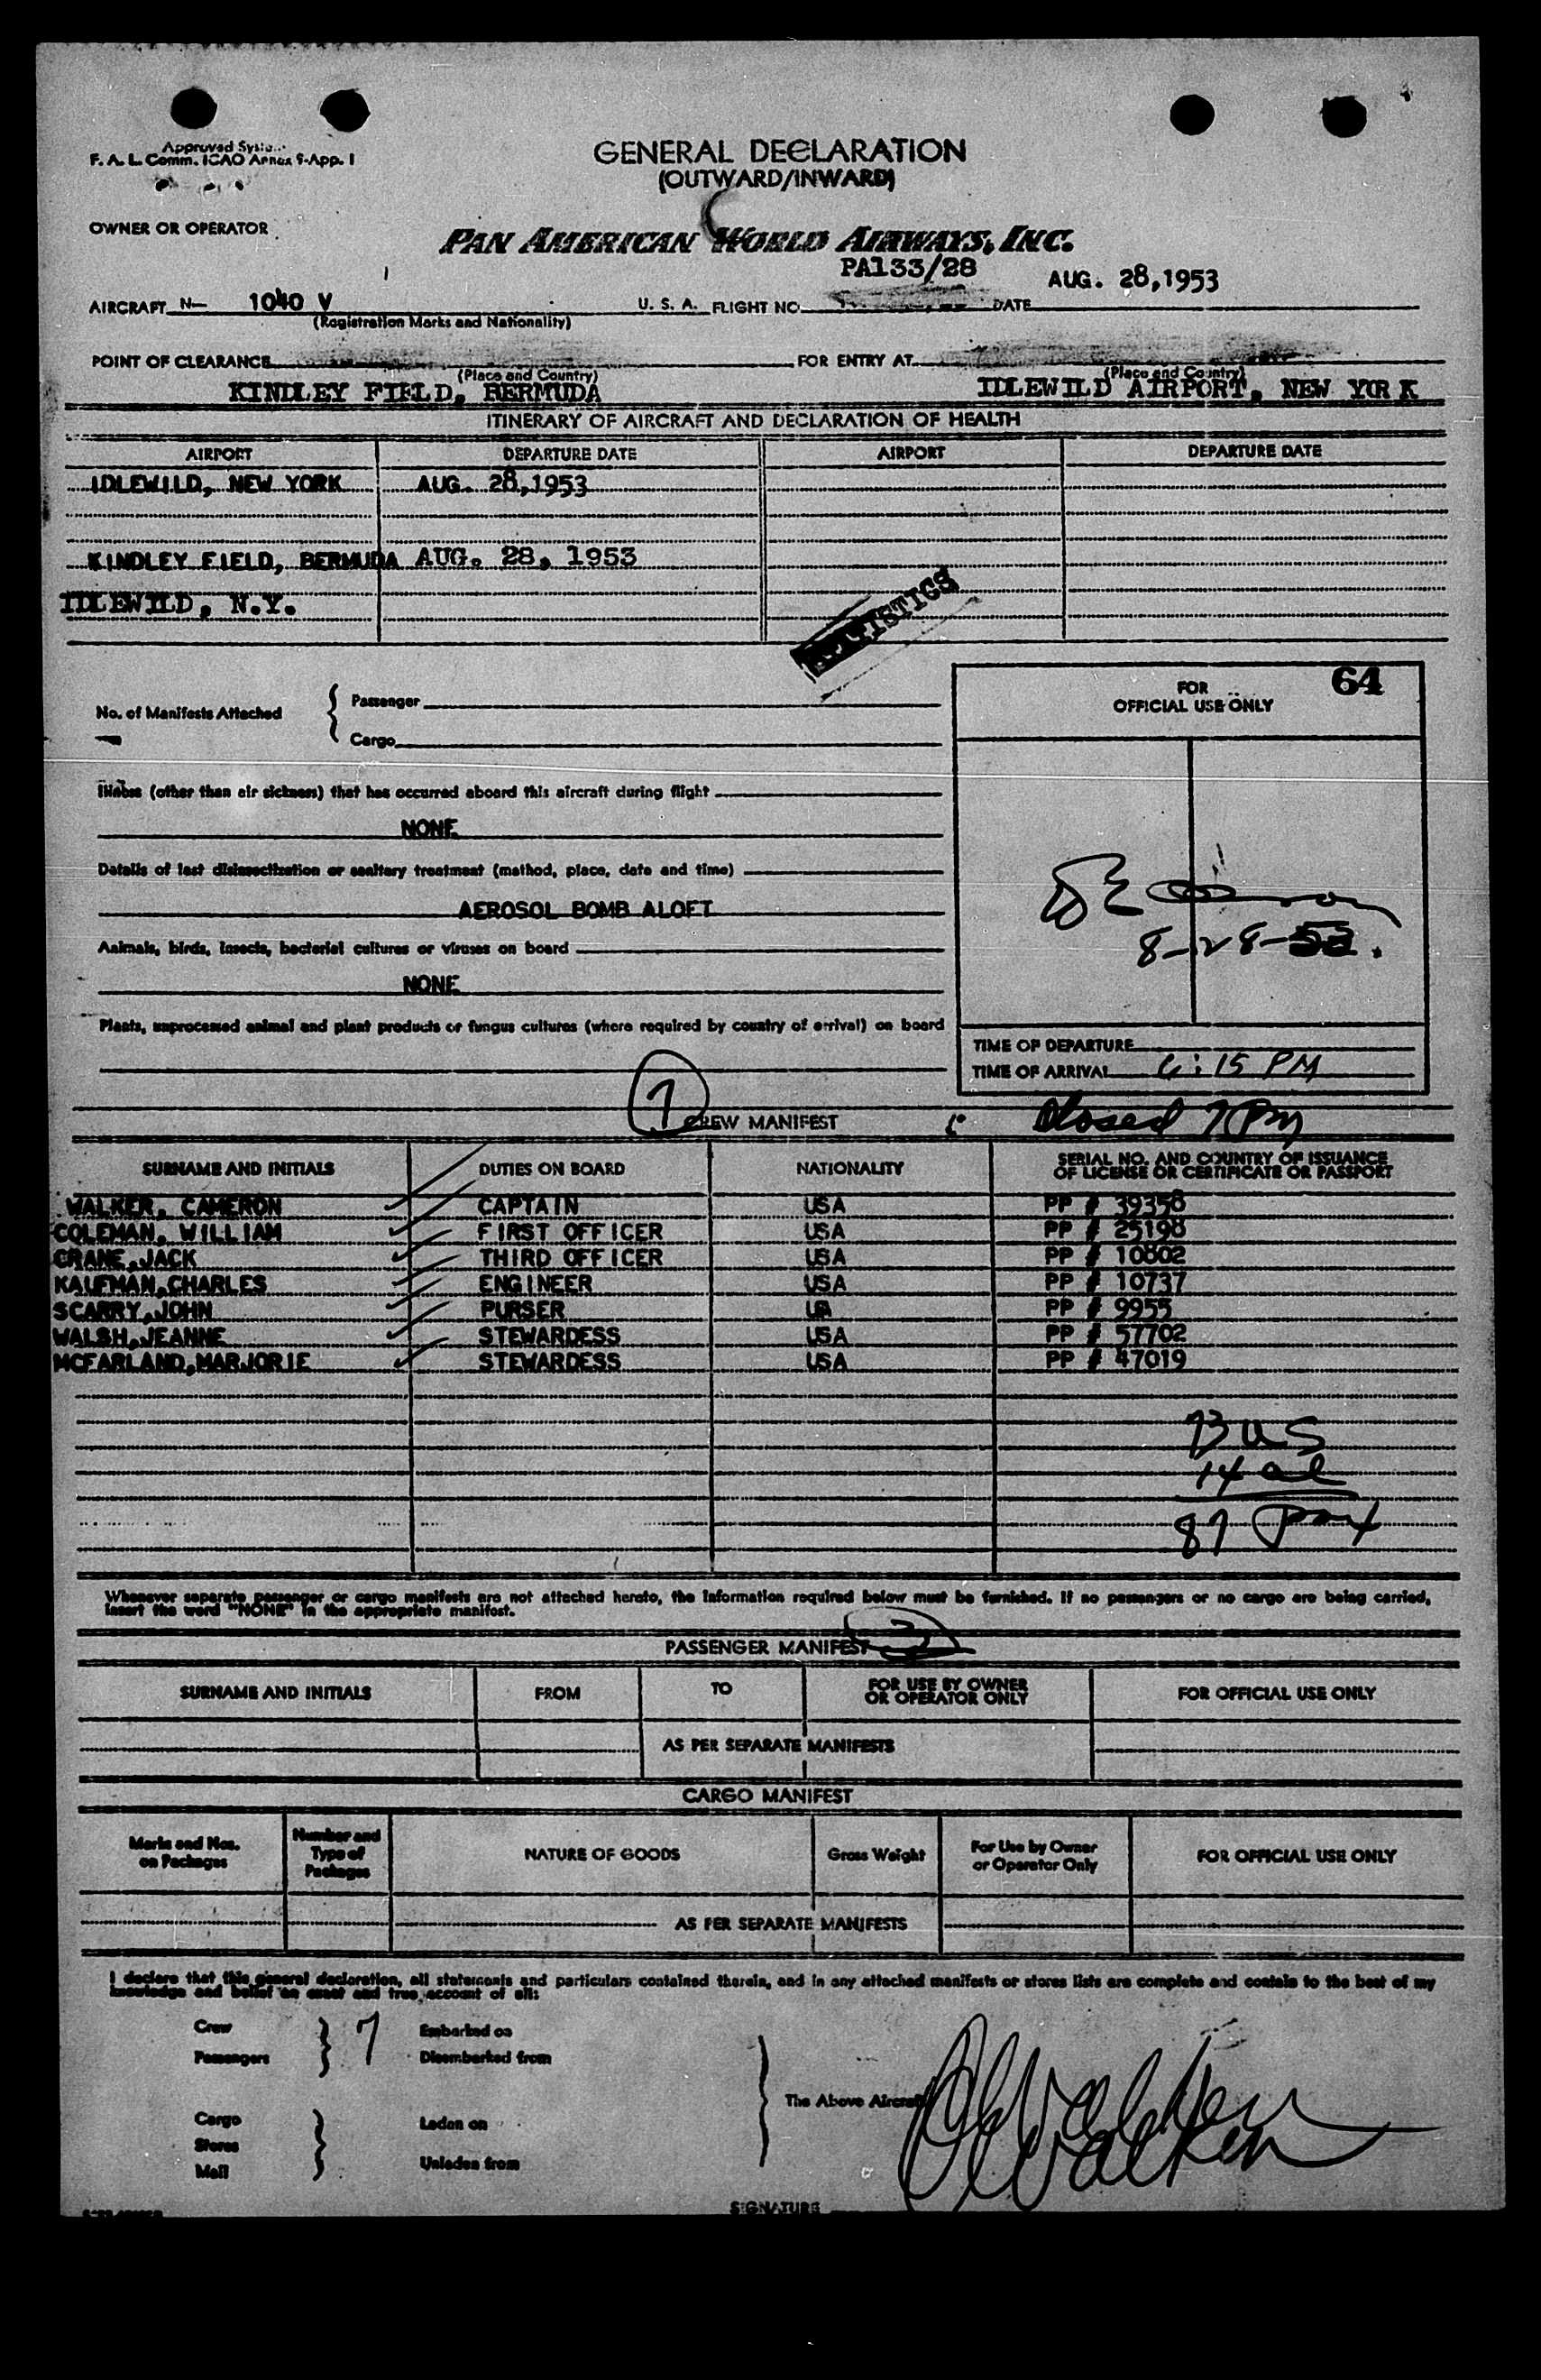 Approved
F. A. L. Comm. ICAO Annex 9-App. I
GENERAL DECLARATION
(OUTWARD/INWARD)
OWNER OR OPERATOR
PAN AMERICAN WORLD AIRWAYS, INC.
PA133/28
AUG. 28,1953
AIRCRAFT N— 1040 V U. S. A. FLIGHT NO. DATE
(Registration Marks and Nationality)
POINT OF CLEARANCE FOR ENTRY AT
(Place and Country) (Place and Country)
KINDLEY FIELD, BERMUDA IDLEWILD AIRPORT, NEW YORK
ITINERARY OF AIRCRAFT AND DECLARATION OF HEALTH
AIRPORT DEPARTURE DATE AIRPORT DEPARTURE DATE
IDLEWILD, NEW YORK AUG. 28,1953
KINDLEY FIELD, BERMUDA AUG. 28, 1953
IDLEWILD, N.Y.
STATISTICS
FOR 64
OFFICIAL USE ONLY
No. of Manifests Attached
Passenger
Cargo
Illness (other than air sickness) that has occurred aboard this aircraft during flight
NONE
Details of last disinsectization or sanitary treatment (method, place, date and time)
AEROSOL BOMB ALOFT
Animals, birds, insects, bacterial cultures or viruses on board
8-28-53.
NONE
Plants, unprocessed animal and plant products or fungus cultures (where required by country of arrival) on board
TIME OF DEPARTURE
TIME OF ARRIVAL 6:15 PM
7
CREW MANIFEST Closed 7 PM
SURNAME AND INITIALS DUTIES ON BOARD NATIONALITY SERIAL NO. AND COUNTRY OF ISSUANCE
OF LICENSE OR CERTIFICATE OR PASSPORT
WALKER, CAMERON CAPTAIN USA PP # 39358
COLEMAN, WILLIAM FIRST OFFICER USA PP # 25198
CRANE,JACK THIRD OFFICER USA PP # 10802
KAUFMAN,CHARLES ENGINEER USA PP # 10737
SCARRY,JOHN PURSER PP # 9955
WALSH,JEANNE STEWARDESS USA PP # 57702
MCFARLAND,MARJORIE STEWARDESS USA PP # 47019
73 US
14 al
87 pax
Whenever separate passenger or cargo manifests are not attached hereto, the information required below must be furnished. If no passengers or no cargo are being carried,
insert the word "NONE" in the appropriate manifest.
PASSENGER MANIFEST
SURNAME AND INITIALS FROM TO FOR USE BY OWNER
OR OPERATOR ONLY FOR OFFICIAL USE ONLY
AS PER SEPARATE MANIFESTS
CARGO MANIFEST
Marks and Nos.
on Packages
Number and
Type of
Packages
NATURE OF GOODS
Gross Weight
For Use by Owner
or Operator Only
FOR OFFICIAL USE ONLY
AS PER SEPARATE MANIFESTS
I declare that this general declaration, all statements and particulars contained therein, and in any attached manifests or stores lists are complete and contain to the best of my
knowledge and belief an exact and true account of all:
Crew 7 Embarked on
Passengers Disembarked from
The Above Aircraft
Cargo Laden on
Stores
Mail Unladen from
SIGNATURE